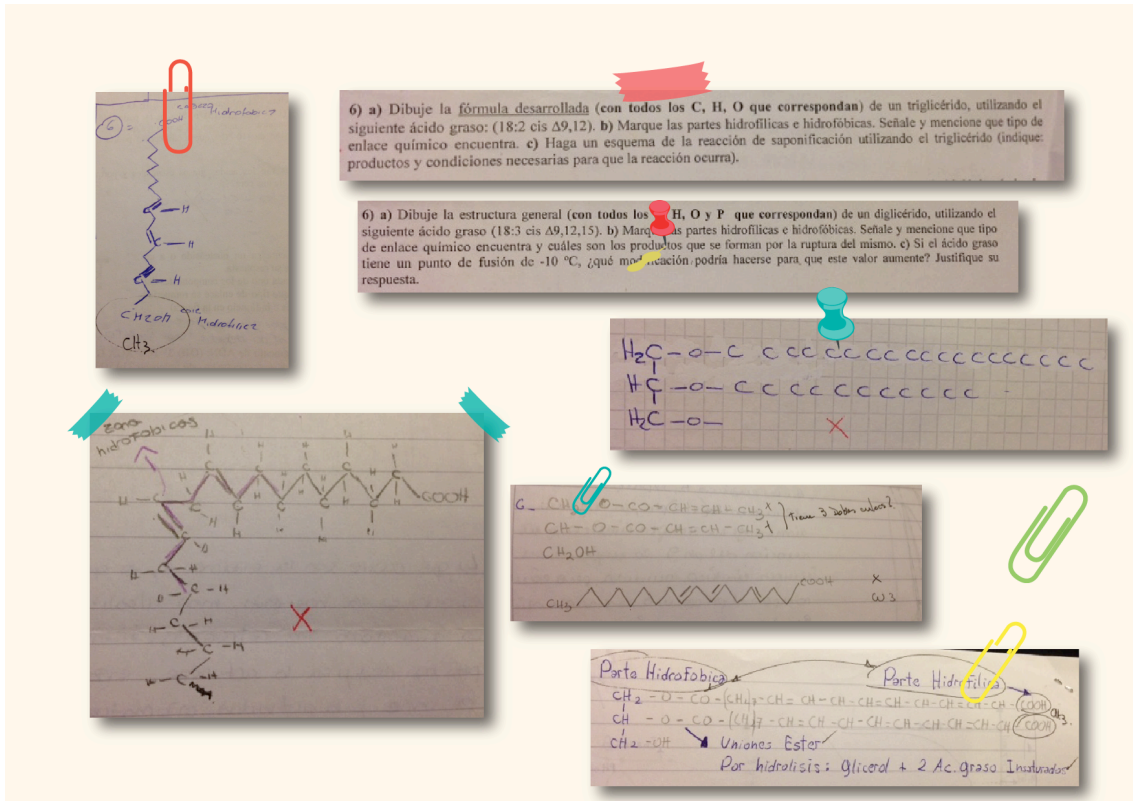 6) a) Dibuje la fórmula desarrollada (con todos los C, H, O que correspondan) de un triglicérido, utilizando el
siguiente ácido graso: (18:2 cis Δ9,12). b) Marque las partes hidrofílicas e hidrofóbicas. Señale y mencione que tipo de
enlace químico encuentra. c) Haga un esquema de la reacción de saponificación utilizando el triglicérido (indique:
productos y condiciones necesarias para que la reacción ocurra).
6) a) Dibuje la estructura general (con todos los H, O y P que correspondan) de un diglicérido, utilizando el
siguiente ácido graso (18:3 cis Δ9,12,15). b) Marque las partes hidrofílicas e hidrofóbicas. Señale y mencione que tipo
de enlace químico encuentra y cuáles son los productos que se forman por la ruptura del mismo. c) Si el ácido graso
tiene un punto de fusión de -10 ºC, ¿qué modificación podría hacerse para que este valor aumente? Justifique su
respuesta.
6=
Hidrofobica
COOH
C - H
C - H
C - H
CH2OH Hidrofilica
CH3.
H2C - O - C C C C C C C C C C C C C C C C C C
HC - O - C C C C C C C C C C C
H2C - O -
X
zona
hidrofobicas
COOH
X
6_ CH O - CO - CH = CH - CH3
CH - O - CO - CH = CH - CH3
CH2OH
CH3 COOH X
ω3
Parte Hidrofobica Parte Hidrofilica
CH2 - O - CO - (CH2)7 - CH = CH - CH - CH = CH - CH - CH = CH - CH - COOH CH3.
CH - O - CO - (CH)7 - CH = CH - CH - CH - CH - CH - CH = CH - CH - COOH
CH2 - OH Uniones Ester
Por hidrolisis: Glicerol + 2 Ac. graso Insaturados